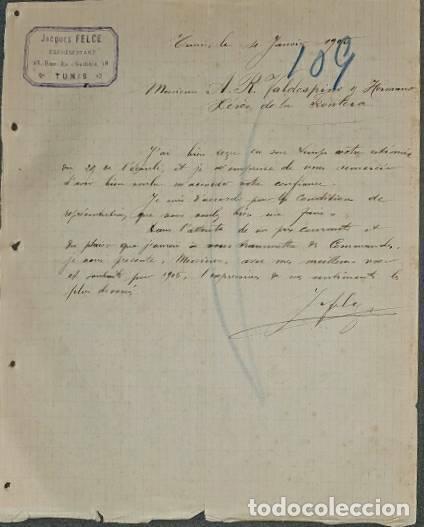 Jacques FELCE
REPRÉSENTANT
TUNIS
Tunis, le 4 Janvier 190
109
Monsieur A. R. Valdespino y Hermano
Xérès de la Frontera
J'ai bien reçu en son temps votre estimée
du 29 de l'écoulé, et je m'empresse de vous remercier
d'avoir bien voulu m'accorder votre confiance.
Je suis d'accord sur les conditions de
représentation, que vous voulez bien me faire.
Dans l'attente de vos prix courants et
du plaisir que j'aurai à vous transmettre des Commandes,
je vous présente, Monsieur, avec mes meilleurs vœux
et souhaits pour 1905, l'expression de mes sentiments les
plus dévoués
J. Felce
todocoleccion